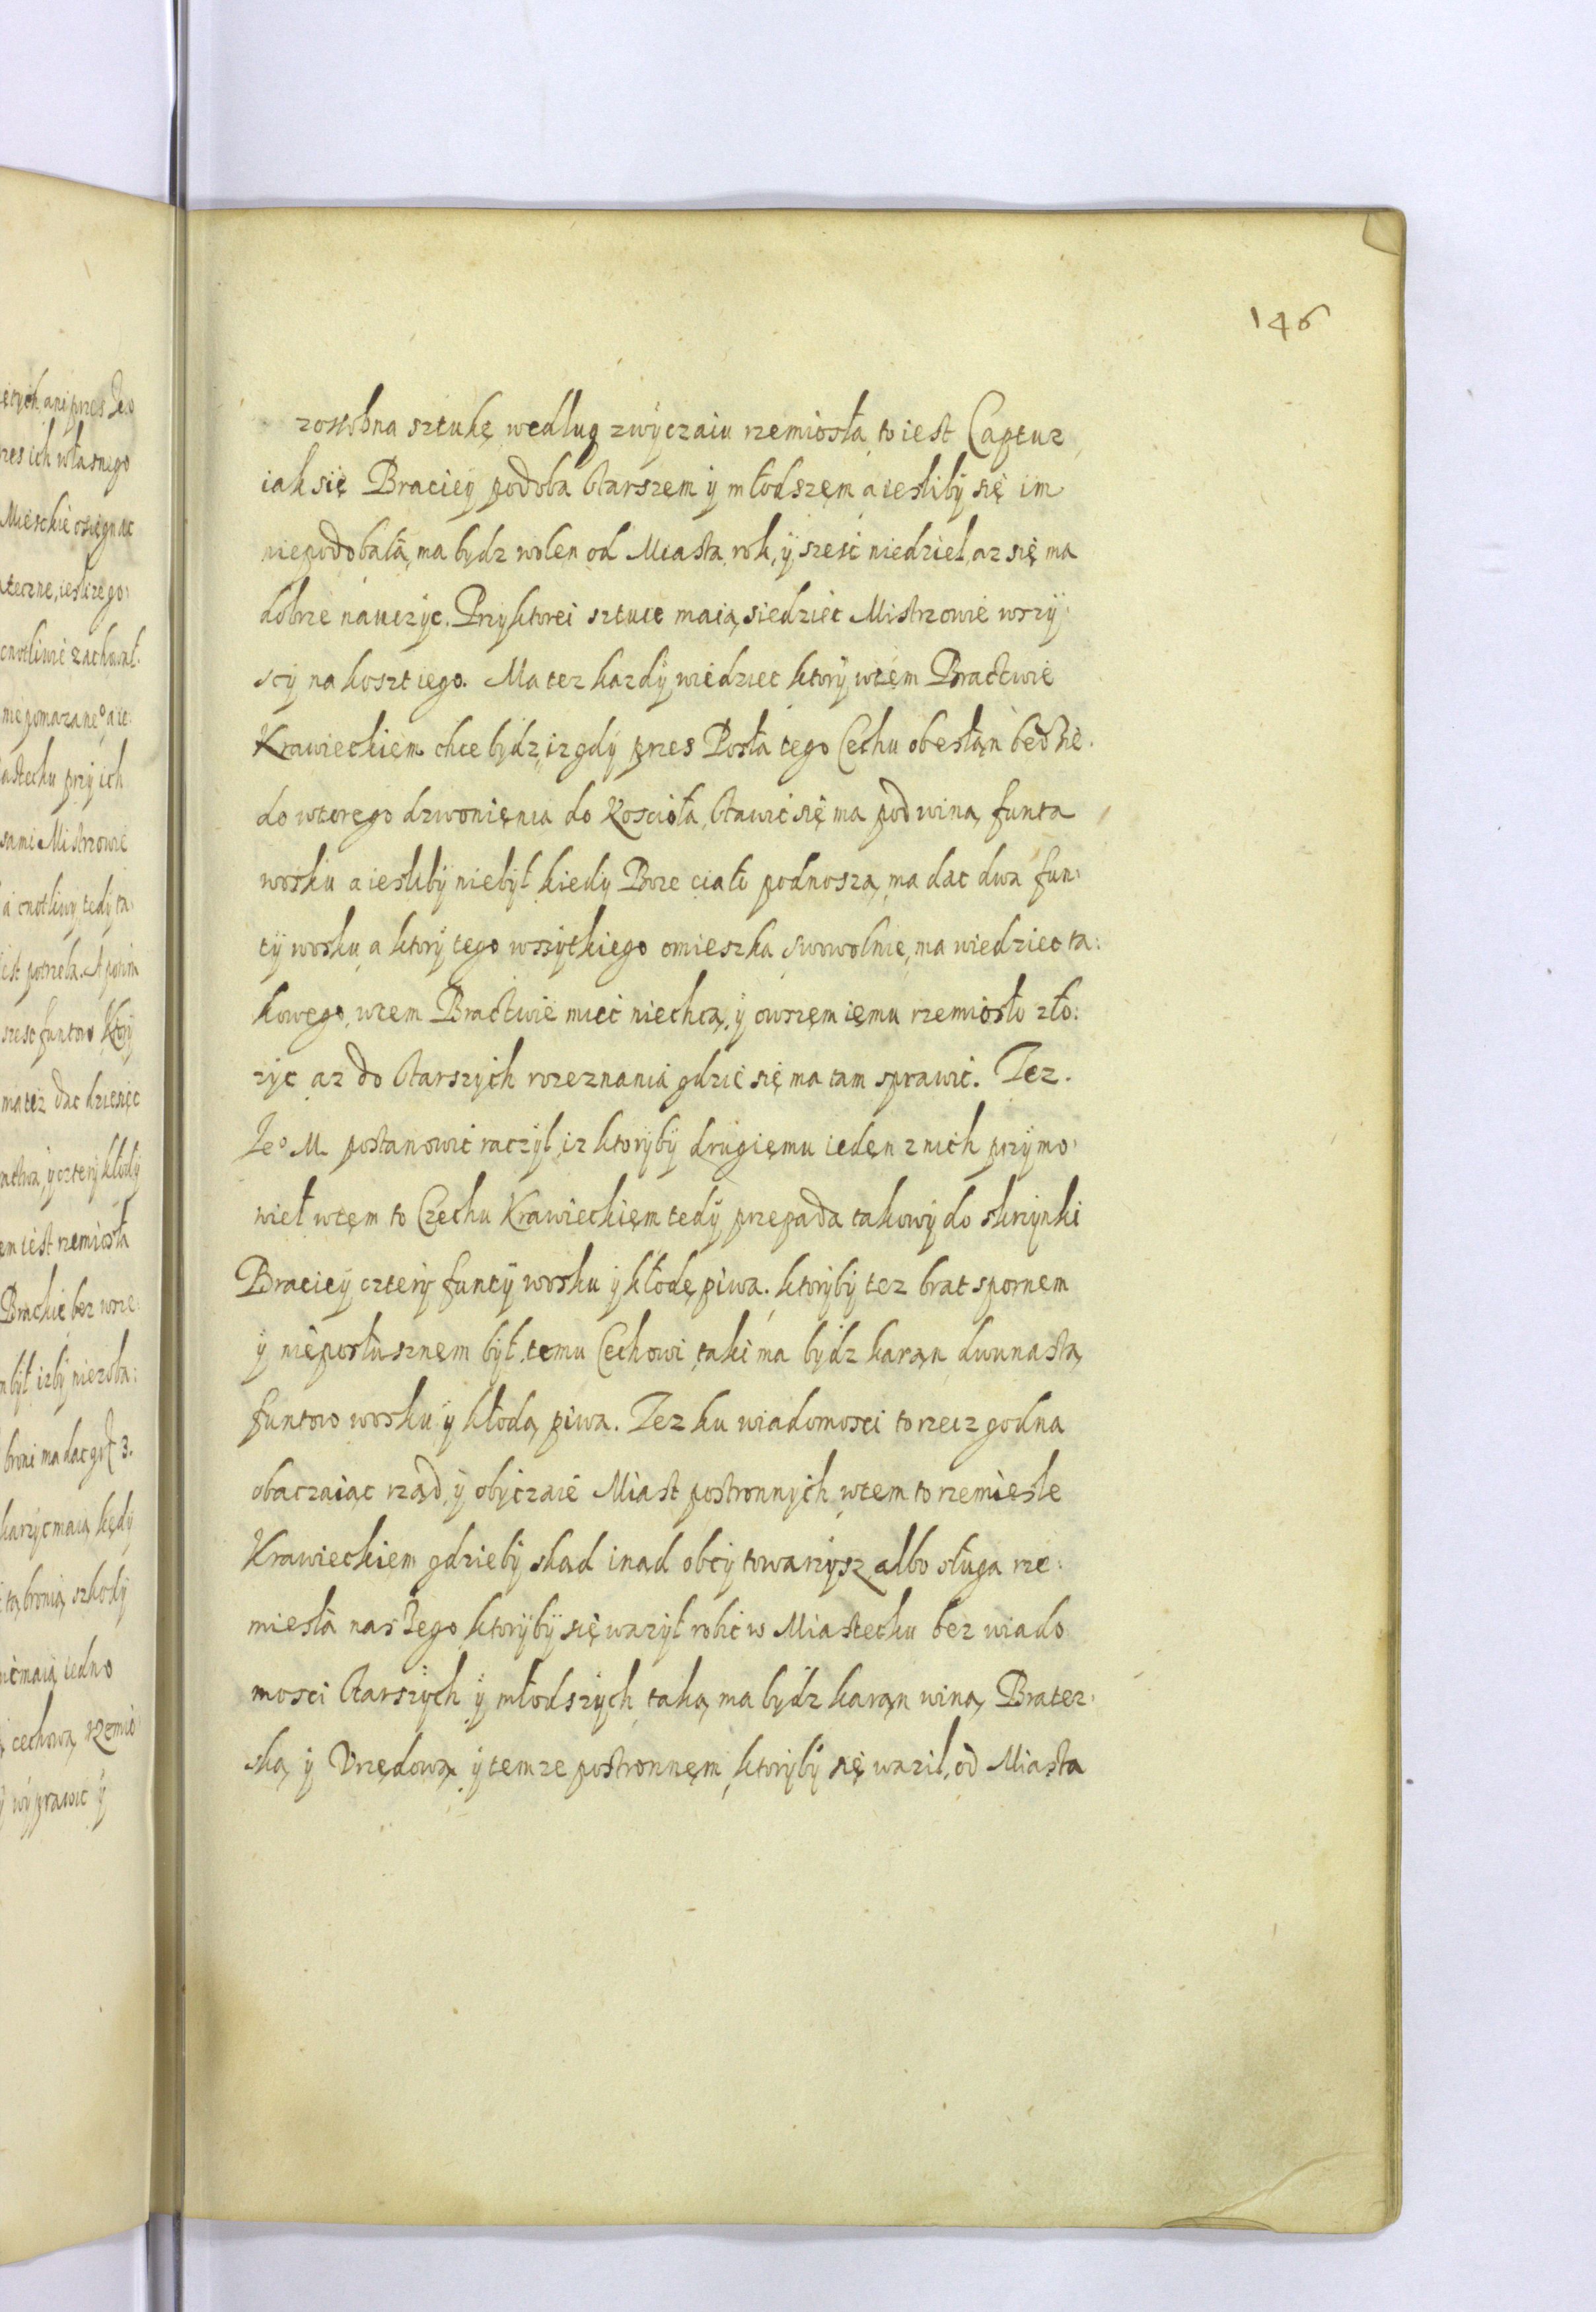 146
zossobna sztukę według zwyczaiu rzemiosła, to iest Captur,
iak się Braciey podoba starszem y młodszem a iesliby się im
niepodobała, ma bydz wolen od Miasta rok, y szesc niedziel, az się ma
dobrze nauczyc. Przy ktorei sztuce maią siedziec Mistrzowie wszy:
scy na koszt iego. Ma tez kazdy wiedziec ktory wtem Bractwie
Krawieckiem chce bydz, iz gdy przes Posła tego Cechu obesłan będzie.
do wtorego dzwonienia do Koscioła, stawic się ma pod winą funta
wosku a iesliby niebył kiedy Boze ciało podnoszą, ma dac dwa fun:
ty wosku, a ktory tego wszytkiego omieszka swowolnie, ma wiedziec ta:
kowego, wtem Bractwie miec niechcą, y owszem iemu rzemiosło zło:
zyc az do starszych rozeznania gdzie się ma tam sprawic. Tez.
Jeº M. postanowic raczył, iz ktoryby drugiemu ieden z nich przymo:
wieł wtem to Czechu Krawieckiem tedy przepada takowy do skrzynki
Braciey cztery funty wosku y kłodę piwa. ktoryby tez brat spornem
y nieposłusznem był, temu Cechowi taki ma bydz karan dwunastą
funtow wosku y kłodą piwa. Tez ku wiadomosci to rzecz godna
obaczaiąc rząd, y obyczaie Miast postronnych wtem to rzemiesle
Krawieckiem gdzieby skad inad obcy towarzysz albo sługa rze:
miesła naszego, ktoryby się wazył robic w Miastecku bez wiado
mosci starszych y młodszych, taką ma bydz karan winą Brater:
ską y Vrzędową y temze postronnem ktoryby się wazil, od Miasta